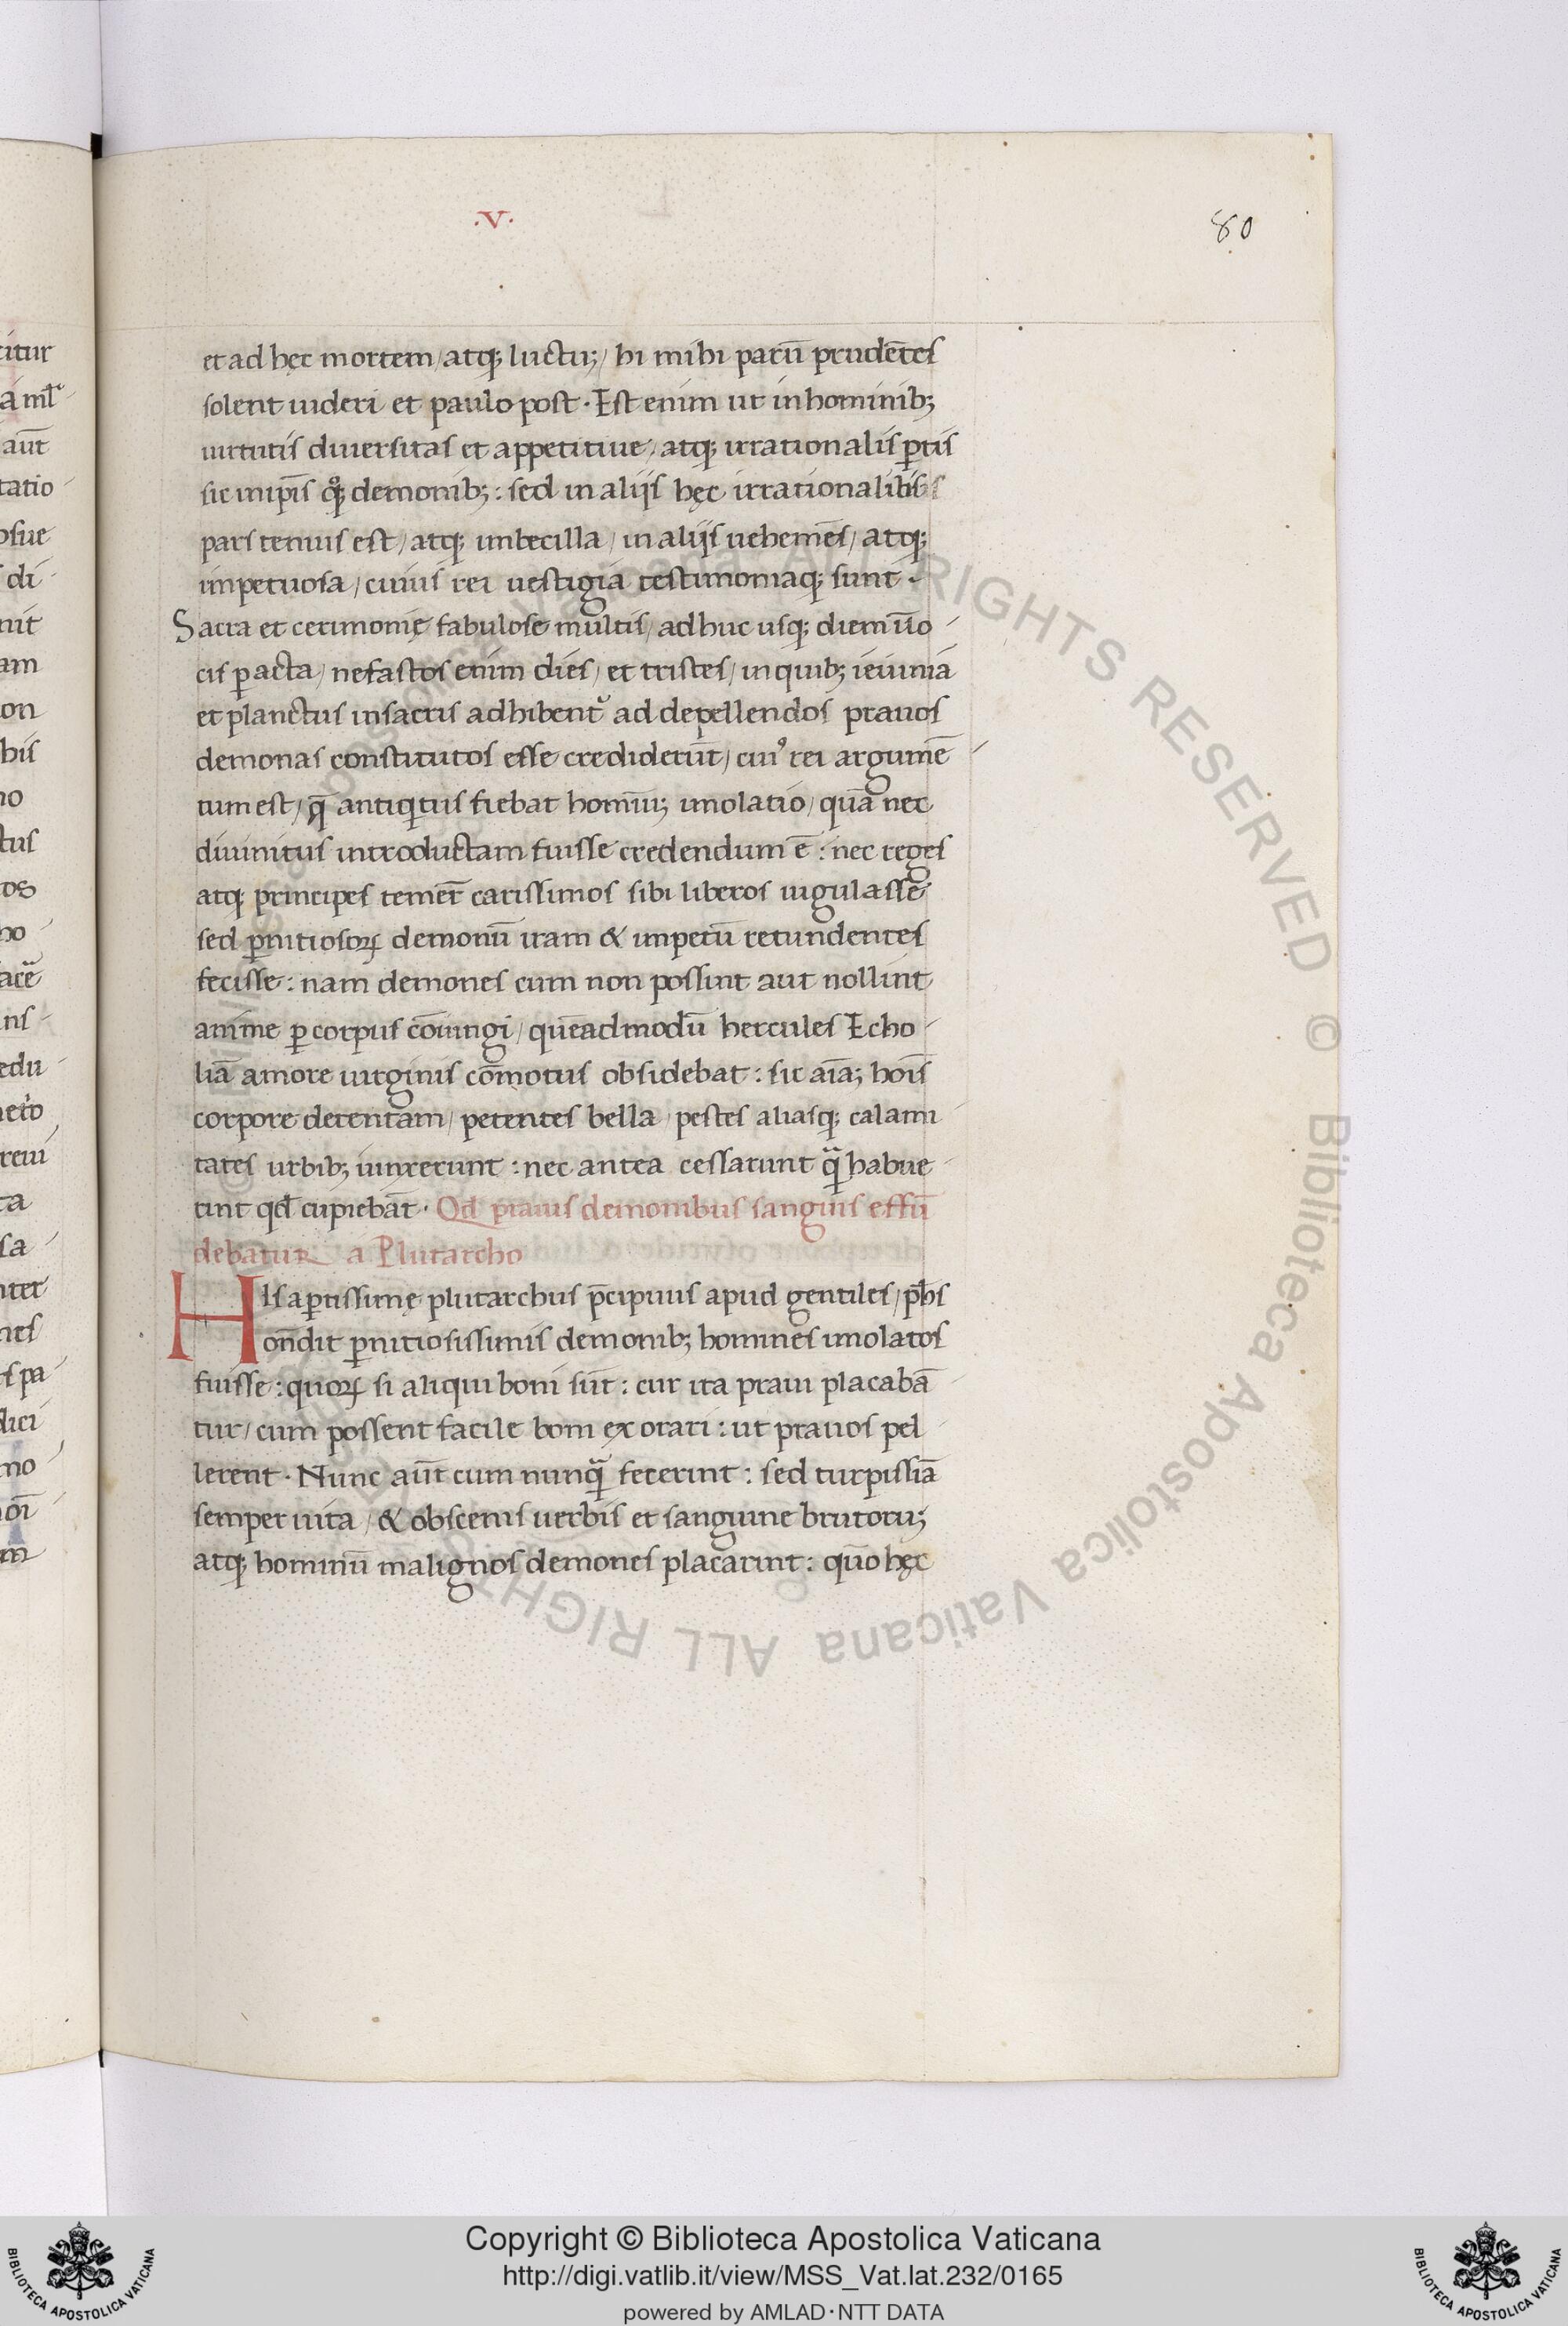 ·V·
80
et ad hęc mortem / atq; luctu; / hi mihi parū prudētes
solent uideri et paulo post · Est enim ut in hominib;
uirtutis diuersitas et appetitiue / atq; irrationalis ꝑtis
sic in ip̄is qͦ; demonib; : sed in alijs hęc irrationalibis
pars tenuis est / atq; imbecilla / in alijs uehemēs / atq;
impetuosa / cuius rei uestigia testimoniaq; sunt ·
Sacra et cerimonię fabulose multis / adhuc usq; diem ūo
cis ꝑacta / nefastos enim dies / et tristes / in quib; ieiunia
et planctus in sacris adhibent᷑ ad depellendos prauos
demonas constitutos esse crediderūt / cuiꝰ rei argumē
tum est / q̄ antiqͥtus fiebat hominū; imolatio / quā nec
diuinitus introductam fuisse credendum ē : nec reges
atq; principes temer̄ carissimos sibi liberos iugulasse
sed ꝑnitiosoꝝ demonū iram & impetū retundentes
fecisse : nam demones cum non possint aut nollint
anime ꝑ corpus cōiungi / quēadmodū hercules Echo
liā amore uirginis cōmotus obsidebat : sic aīa; hoīs
corpore detentam / petentes bella / pestes aliasq; calami
tates urbib; iunxerunt : nec antea cessarunt qͣ̄ habue
rint qd̄ cupiebāt · Qd prauis demonibus sanguis effū
debatur a Plutarcho
HIs aꝑtissimę plutarchus p̄cipuus apud gentiles / ph̄s
on̄dit ꝑnitiosissimis demonib; homines imolatos
fuisse : quoꝝ si aliqui boni sūt : cur ita praui placabā
tur / cum possent facile boni exorari : ut prauos pel
lerent · Nunc aūt cum nunqͣ̄ fecerint : sed turpissīa
semper uita / & obscenis uerbis et sanguine brutoru;
atq; hominū malignos demones placarint : quō hęc
Copyright © Biblioteca Apostolica Vaticana
http://digi.vatlib.it/view/MSS_Vat.lat.232/0165
powered by AMLAD·NTT DATA